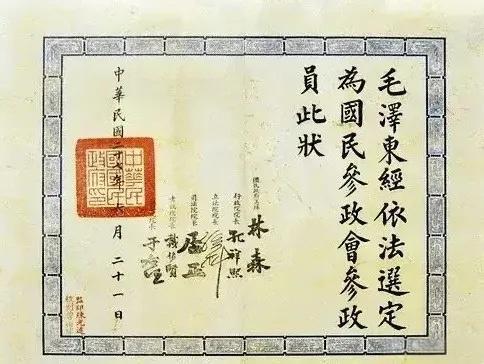 毛澤東經依法選定
為國民參政會參政
員此狀
國民政府主席 林森
行政院院長 孔祥熙
立法院院長 孫科
司法院院長 居正
考試院院長 戴傳賢
院長 于右任
中華民國二十七年六月二十一日
中華民國國民政府印
監印陳光遠
校對